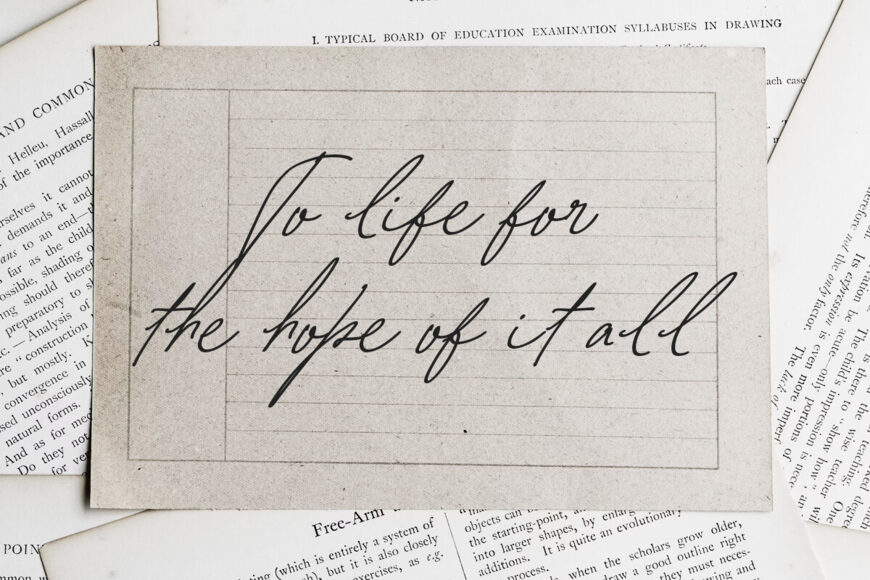 I. TYPICAL BOARD OF EDUCATION EXAMINATION SYLLABUSES IN DRAWING
each case
AND COMMON
Helleu, Hassall
of the importance
it cannot
demands it and
to an end—
far as the child
shading
should
preparatory to
—Analysis of
"construction
but mostly.
convergence in
used unconsciously
natural forms.
And as for
Do they not
for
To life for
the hope of it all
not the only factor.
Its expression is even more
be acute—only portions of
The child's impression is
is there to "show how," an
the wise teacher
teaching. One
The lack of
POIN
Free-Arm
(which is entirely a system of
but it is also closely
exercises, as e.g.
objects can
the starting-point, and
into larger shapes, by
additions. It is quite an evolutionary
process.
when the scholars grow older,
draw a good outline right
they must neces-